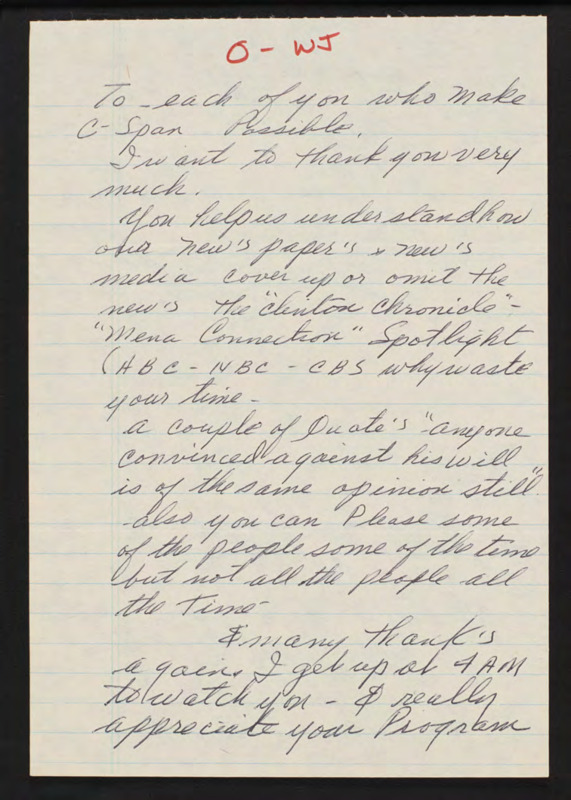 O - WJ
To each of you who make
C-Span Possible.
I want to thank you very
much.
You help us understand how
our new's paper's & new's
media cover up or omit the
new's the "clinton chronicle" -
"Mena Connection" Spotlight
(ABC - NBC - CBS why waste
your time -
a couple of Quote's "anyone
convinced against his will
is of the same opinion still"
- also you can Please some
of the people some of the time
but not all the people all
the Time -
& many thank's
again, I get up at 4 AM
to watch you - & really
appreciate your Program